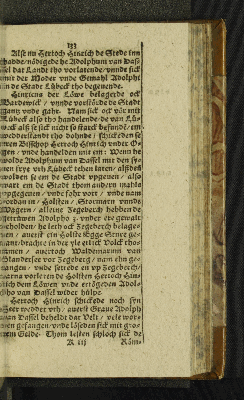 133
Alse nu Hertoch Hinrich de Stede inn
hadde / nödigede he Adolphum van Das-
sel dat Landt tho vorlatende / vnnde sick
mit der Moder vnde Gemahl Adolphi
in de Stade Lübeck tho begevende.
Hinricus der Löwe belagerde ock
Bardewick / vnde vorstörde de Stadt
gantz vnde gahr. Nam sick ock vör mit
Lübeck also tho handelende / de van Lü-
beck alse se sick nicht so starck befunde / em
wedderstandt tho dohnde / schickeden se
eren Bisschop
gen / vnde handelden mit em: Wenn he
wolde Adolphum van Dassel mit den sy-
nen frye vth Lübeck tehen laten / alsden
wolden se em de Stadt vpgeven / also
wart em de Stadt thom andern mahle
vpgegeven / vnde fohr vort / vnde nam
vordan in / Holsten / Stormarn vnnde
Wagern / allene Zegeberch hebben de
getrüwen Adolpho 3. vnder de gewalt
beholden / he lech ock Zegeberch belager-
en / averst ein Holste Egge Sture ge-
nant / brachte in der yle etlick Volck tho-
samen / averuell Waldemarum van
vor Zegeberg / nam ehn ge-
fangen / vnde settede en vp Zegeberch /
darna vorleten de Holsten Hertoch Hin-
rich dem Löwen vnde ertögeden Adol-
pho van Dassel wider hülpe.
Hertoch Hinrich schickede noch syn
Heer wedder vth / averst Grave Adolph
van Dassel beheldt dat Velt / vele wor-
den gefangen / vnde löseden sick mit gro-
tem Gelde. Thom lesten schloch sick de
R iij Röm-